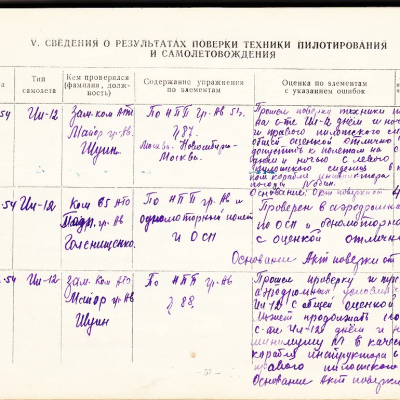 V. СВЕДЕНИЯ О РЕЗУЛЬТАТАХ ПОВЕРКИ ТЕХНИКИ ПИЛОТИРОВАНИЯ
И САМОЛЕТОВОЖДЕНИЯ
Тип
самолета
Кем проверялся
(фамилия, долж-
ность)
Содержание упражнения
по элементам
Оценка по элементам
с указанием ошибок
54
Ил-12
Зам. ком АТО
Майор гр. Ав
Шуин.
По НПП гр. Ав 51г.
у 87.
Москва-Новосибирск-
Москва.
Прошел поверку техники
на с-те Ил-12 днём и
и правого пилотского
общей оценкой отлично
допустить к полетам на с
днём и ночью с левого
пилотского сиденья в
ком корабля инструктора
погоды
Основание: Акт поверки от
54
Ил-12
Ком 65 АТО
Подп. гр. Ав
Голенищенко.
По НПП гр. Ав и
одномоторный полет
и ОСП
Проверен в аэродром
по ОСП и одномотор
с оценкой отлично
Основание Акт поверки от
54
Ил-12
Зам. Ком АТО
Майор гр. Ав
Шуин
По НПП гр. Ав
у 88.
Прошел проверку и
аэродромных условиях
Ил-12 с общей оценкой
Может продолжать
с-те Ил-12 днём и
минимуму М в каче
корабля инструктора с
правого пилотского
Основание Акт поверки